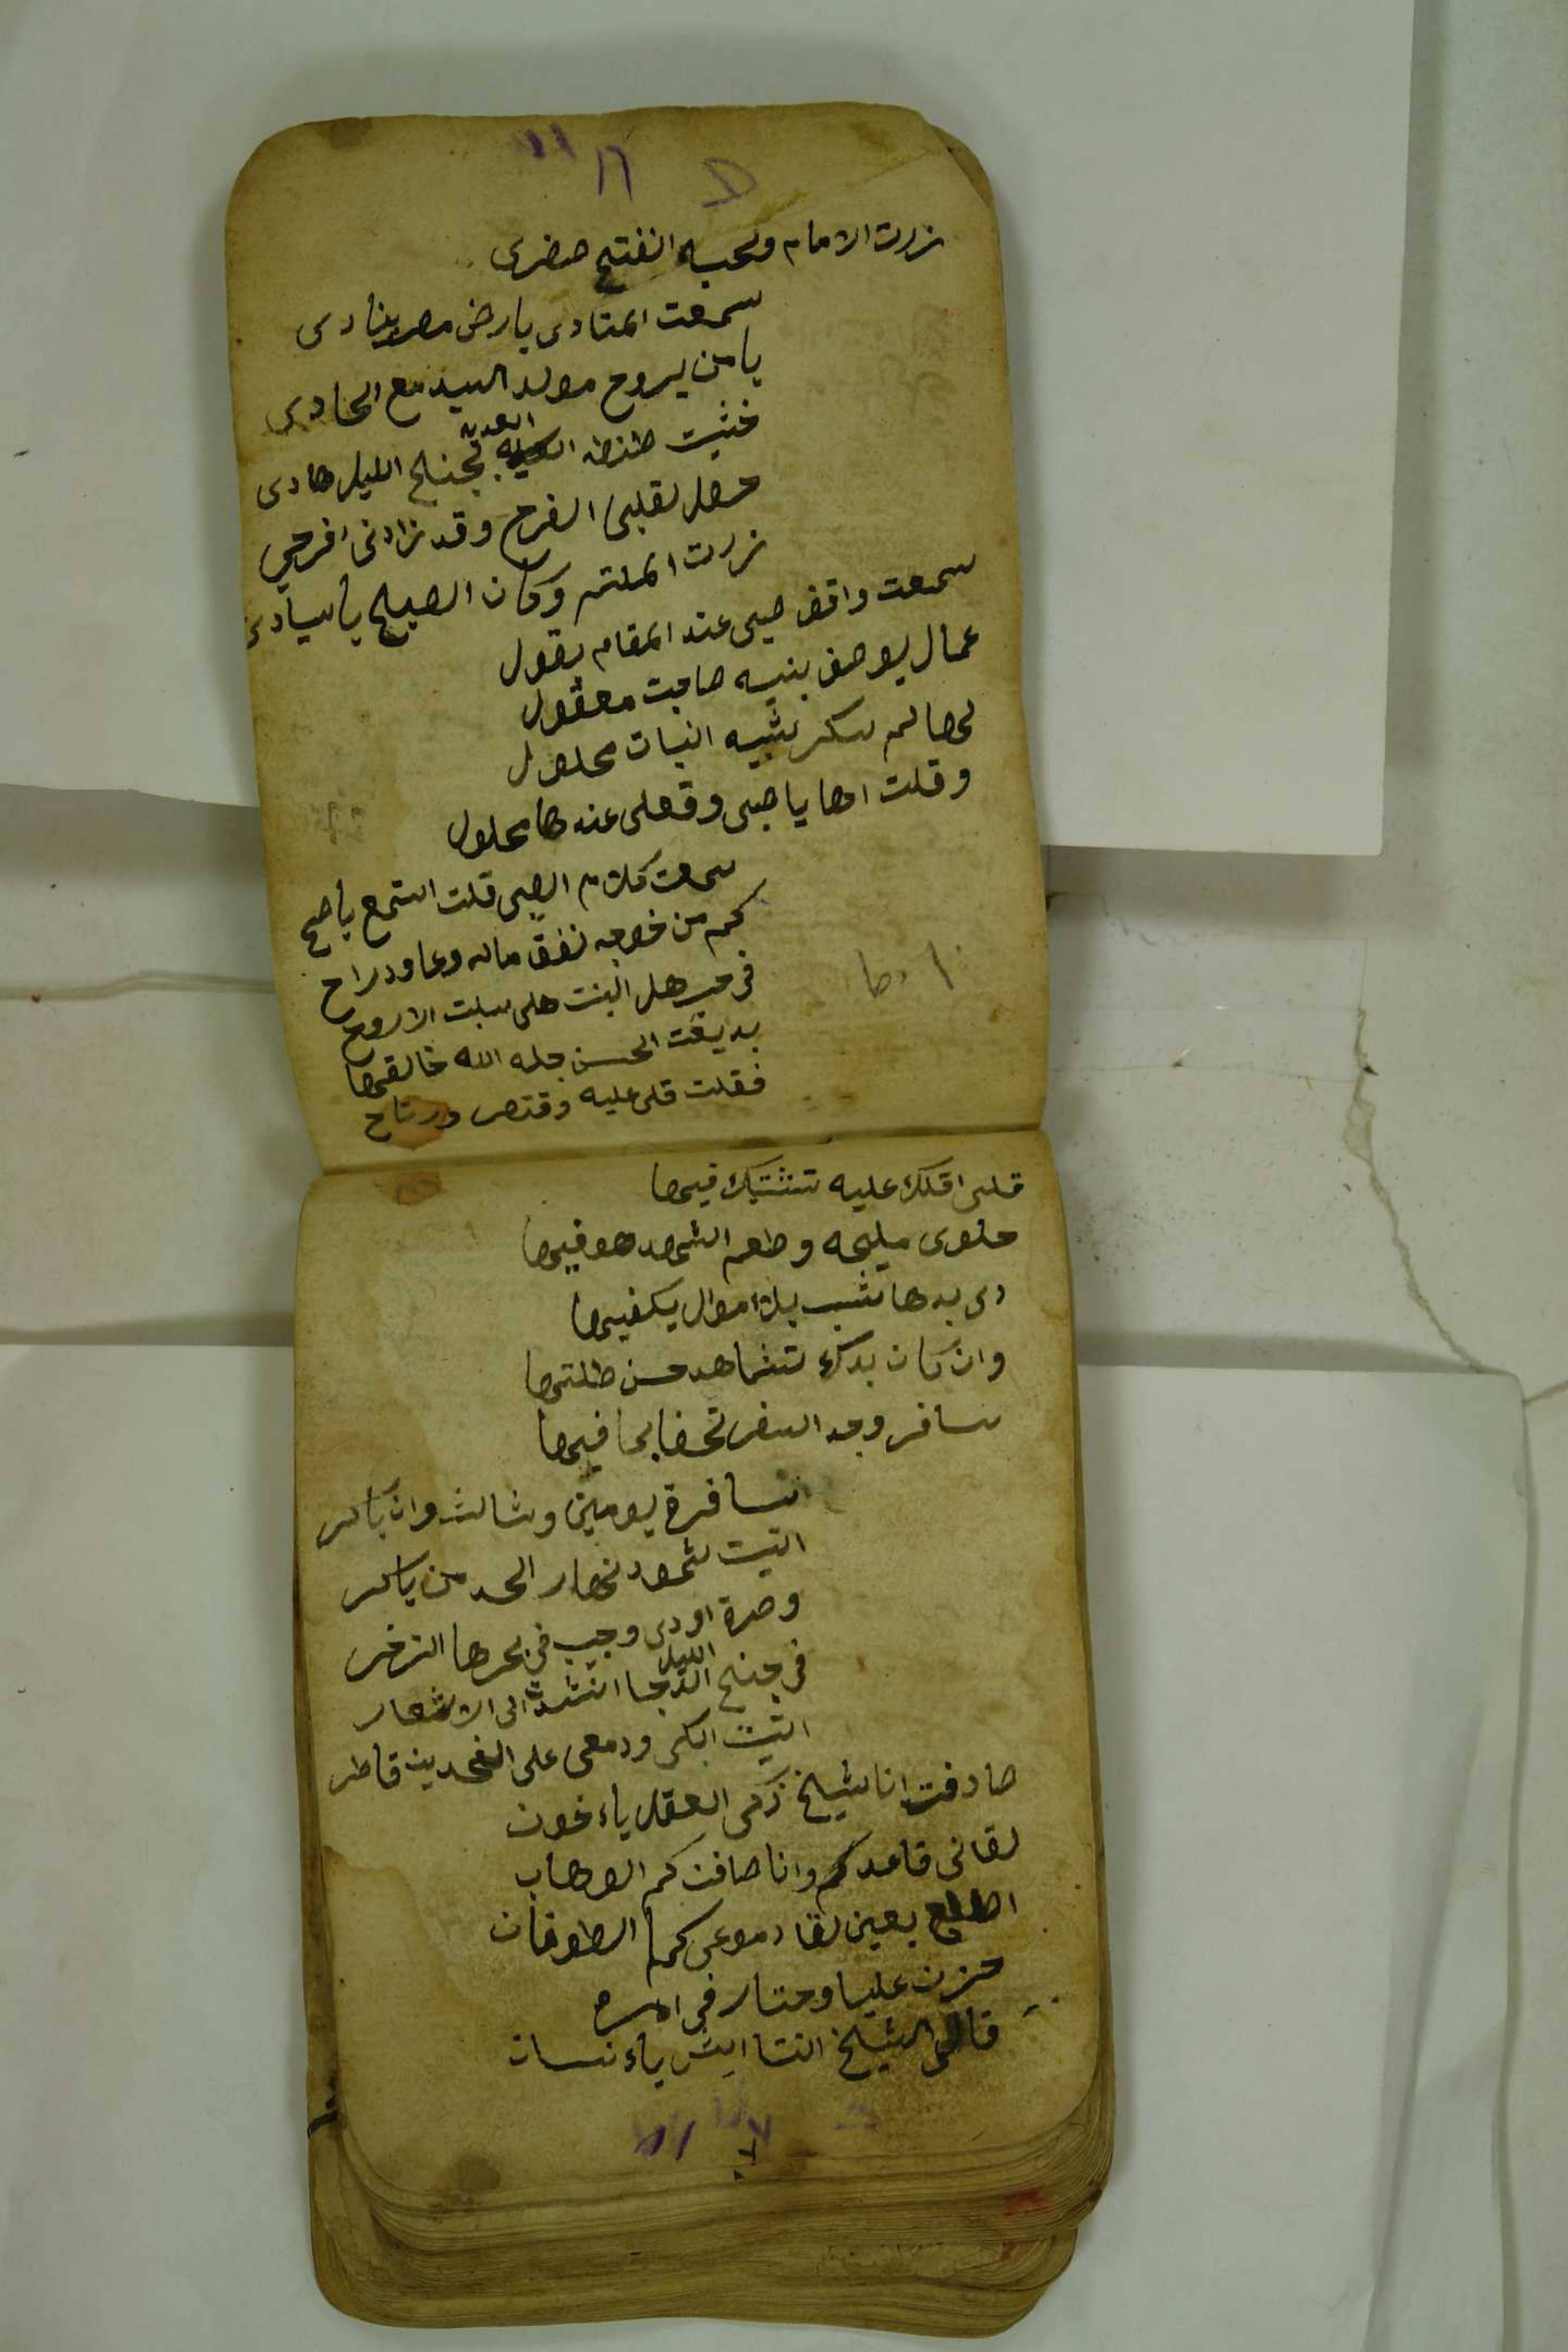 زرت الامام وحبه انفتح صدرى
سمعت المنادى بارض مصر ينادى
يا من يروح مولد السيد مع الحادى
خشيت طنطه العديه بجنح الليل هادى
حصل لقلبى الفرح وقد زادنى افرحي
زرت الملثم وكان الصبح يا سيادى
سمعت واقف صبى عند المقام يقول
عمال يوصف بنيه صاحبت معقول
لها لم سكر شبيه النبات محلول
وقلت اها يا صبى وقعلى عندها محلول
سمعت كلام الصبى قلت استمع يا صح
كم من خوجه نفق ماله وعاود راح
فرحب هل البنت هلى سلبت الاروح
بديقت الحسن جله الله خالقها
فقلت قلى عليه وقتصر ورتاح
قلى اقلك عليه تشتبك فيها
حلوى مليحه وطعم الشهد هو فيها
دى بدها شب بلا موال يكفيها
وان كان بدك تشاهد حسن طلتها
سافر وجد السفر تحضا بما فيها
سافرة يومين وثالث وان باكر
اتيت شهود نهار الحد من باكر
وصرة اودى وجيب فى بحرها الزخر
فى جنح الليل الدجا انشدت الى الاشعار
اتيت ابكى ودمعى على الخدين قاطر
صادفت انا شيخ زكى العقل ياء خون
لقانى قاعد كم وانا صافن كم الوهاب
اطلع بعين لقا دموعى كما الطوفان
حزن عليا وحتار فى امره
قالى الشيخ انتا ايش ياء نسان